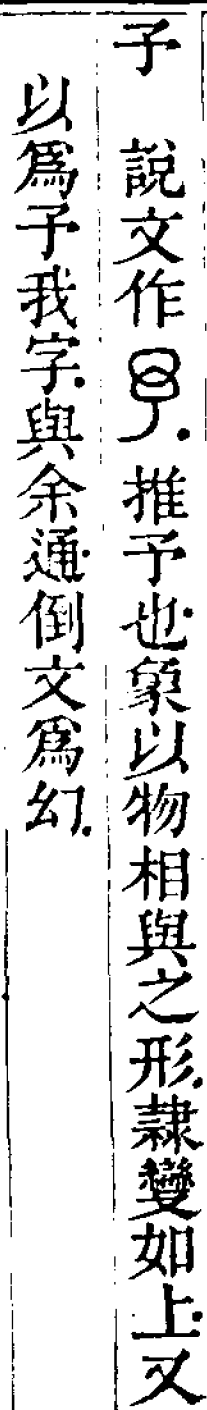 予 說文作𠄔.推予也.象以物相與之形.隷變如上.又
以爲予我字.與余通.倒文爲幻.